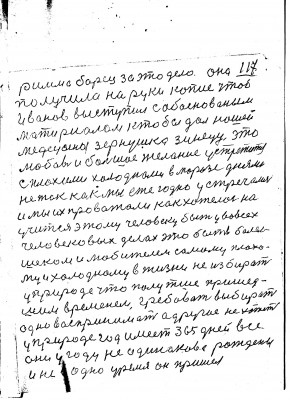 117
римма борец за это дело. она
получила на руки копие чтоб
Иванов выступил с обоснованым
материалом кто бы дал нашей
зернушка за идею это
любовь и большое желание устретит
с плохими холодными в морозе днями
не так как мы ежегодно устречали
и мы их провожали как хотел она
учится этому человеку быть у во всех
человековых делах это быть
шеком и любителем самому плохо-
му и холодному в жизни не избират
у природе что получше пришед-
шим временем, требоват выбират
одно воспринимат а другое не хотет
у природе год имеет 365 дней все
они у году не одинаково рождены
и не одно время он пришел